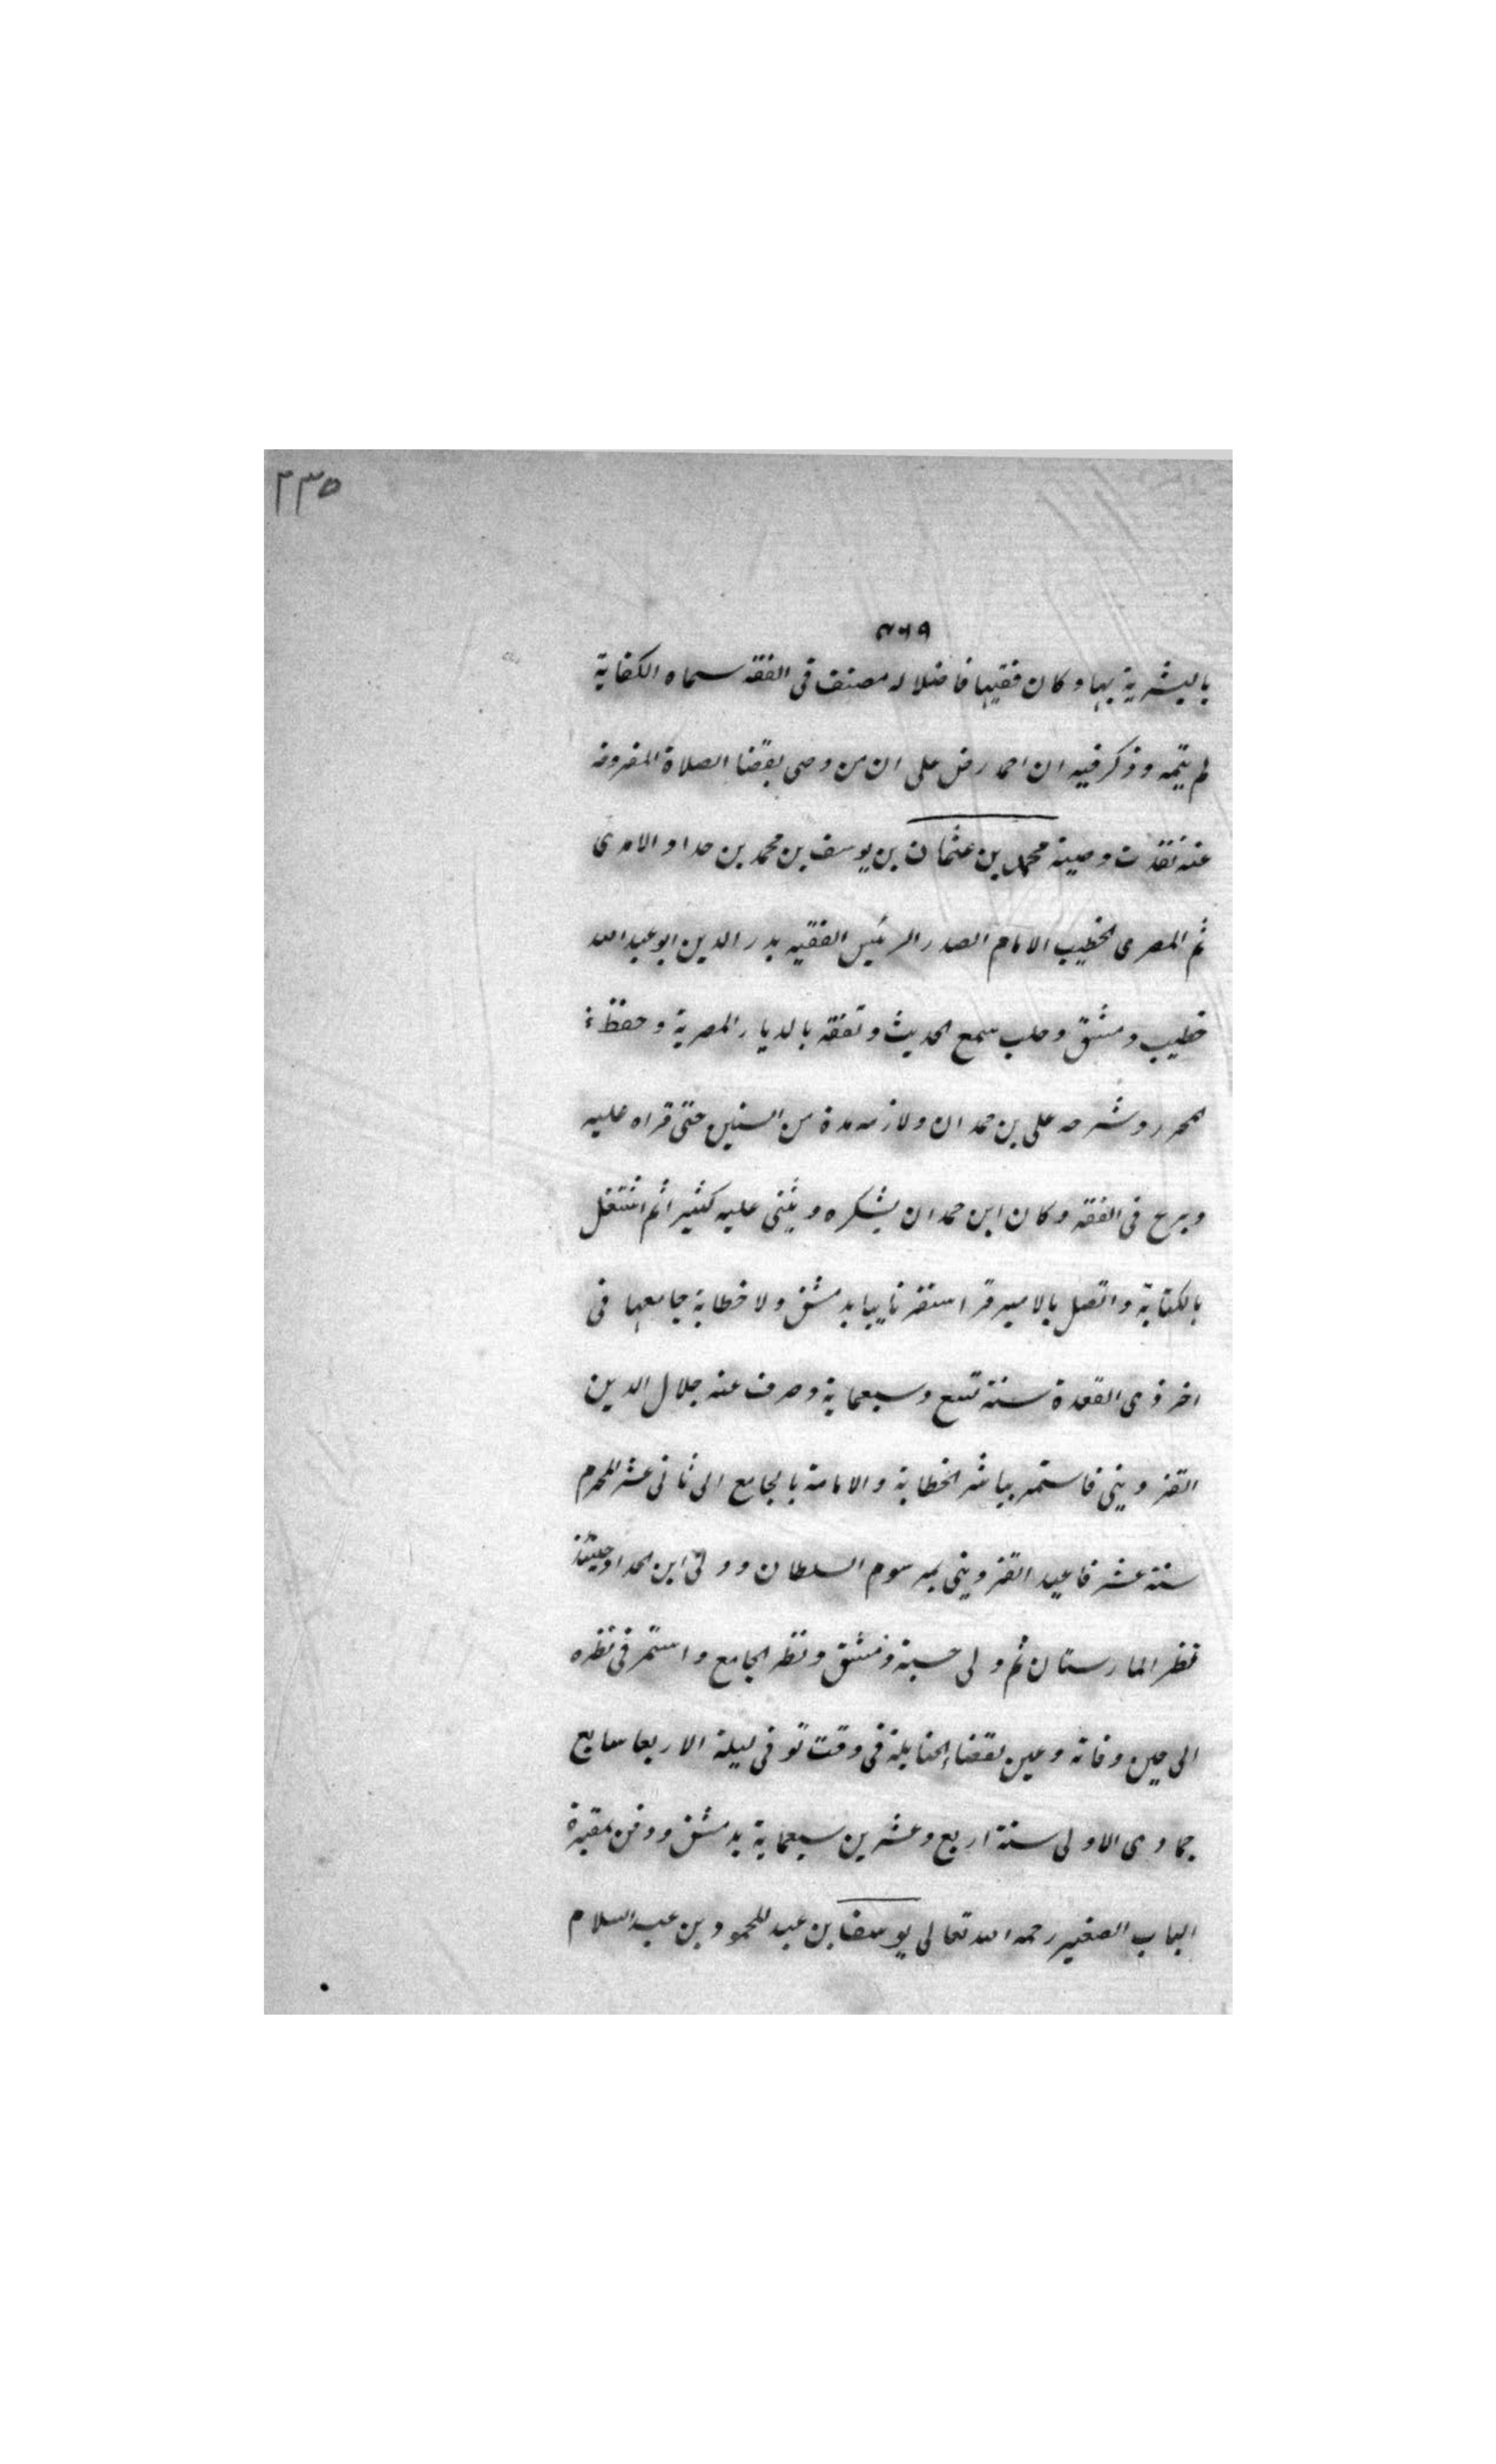 ٢٣٥
٤٦٩
بالبشرية بها وكان فقيها فاضلا له مصنف فى الفقه سماه الكفاية
لم يتمه وذكر فيه ان احمد رض على ان من وصى بقضا الصلاة المفروضه
عنه نفذت وصيته محمد بن عثمان بن يوسف بن محمد بن حداد الامدى
ثم المصرى الخطيب الامام الصدر الرئيس الفقيه بدر الدين ابو عبد الله
خطيب دمشق وحلب سمع الحديث وتفقه بالديار المصرية وحفظ
المحرر وشرحه على بن حمدان ولازمه مدة من السنين حتى قراه عليه
وبرع فى الفقه وكان ابن حمدان يشكره ويثنى عليه كثيرا ثم اشتغل
بالكتابة واتصل بالامير قراسنقر نايبا بدمشق ولا خطابة جامعها فى
اخر ذى القعدة سنة تسع وسبعماية وصرف عنه جلال الدين
القزوينى فاستمر يباشر الخطابة والامامة بالجامع الى ثانى عشر المحرم
سنة عشر فاعيد القزوينى بمرسوم السلطان وولى ابن الحداد حينئذ
نظر المارستان ثم ولى حسبة دمشق ونظر الجامع واستمر فى نظره
الى حين وفاته وعين لقضاء الحنابلة فى وقت توفى ليلة الاربعا سابع
جمادى الاولى سنة اربع وعشرين سبعماية بدمشق ودفن بمقبرة
الباب الصغير رحمه الله تعالى يوسف بن عبد المحمود بن عبد السلام